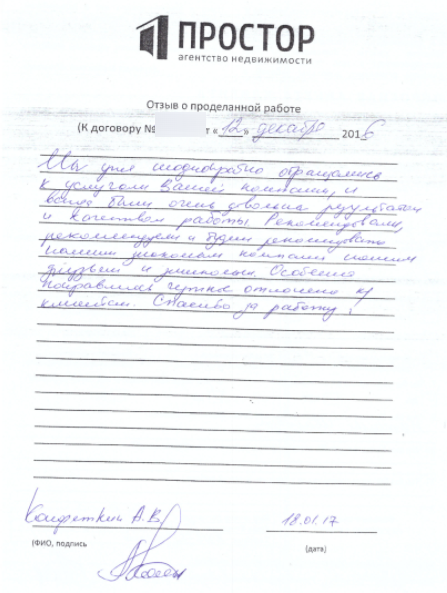 ПРОСТОР
агентство недвижимости
Отзыв о проделанной работе
(К договору № т « 12 » декабря 2016
Мы уже неоднократно обращались
к услугам Вашей компании и
были очень довольны результатом
и качеством работы. Рекомендовали,
рекомендуем и будем рекомендовать
нашим знакомым компании нашим
друзьям и Особенно
понравилось чуткое отношение к
клиентам. Спасибо за работу!
А.В.
18.01.17
(ФИО, подпись
(дата)